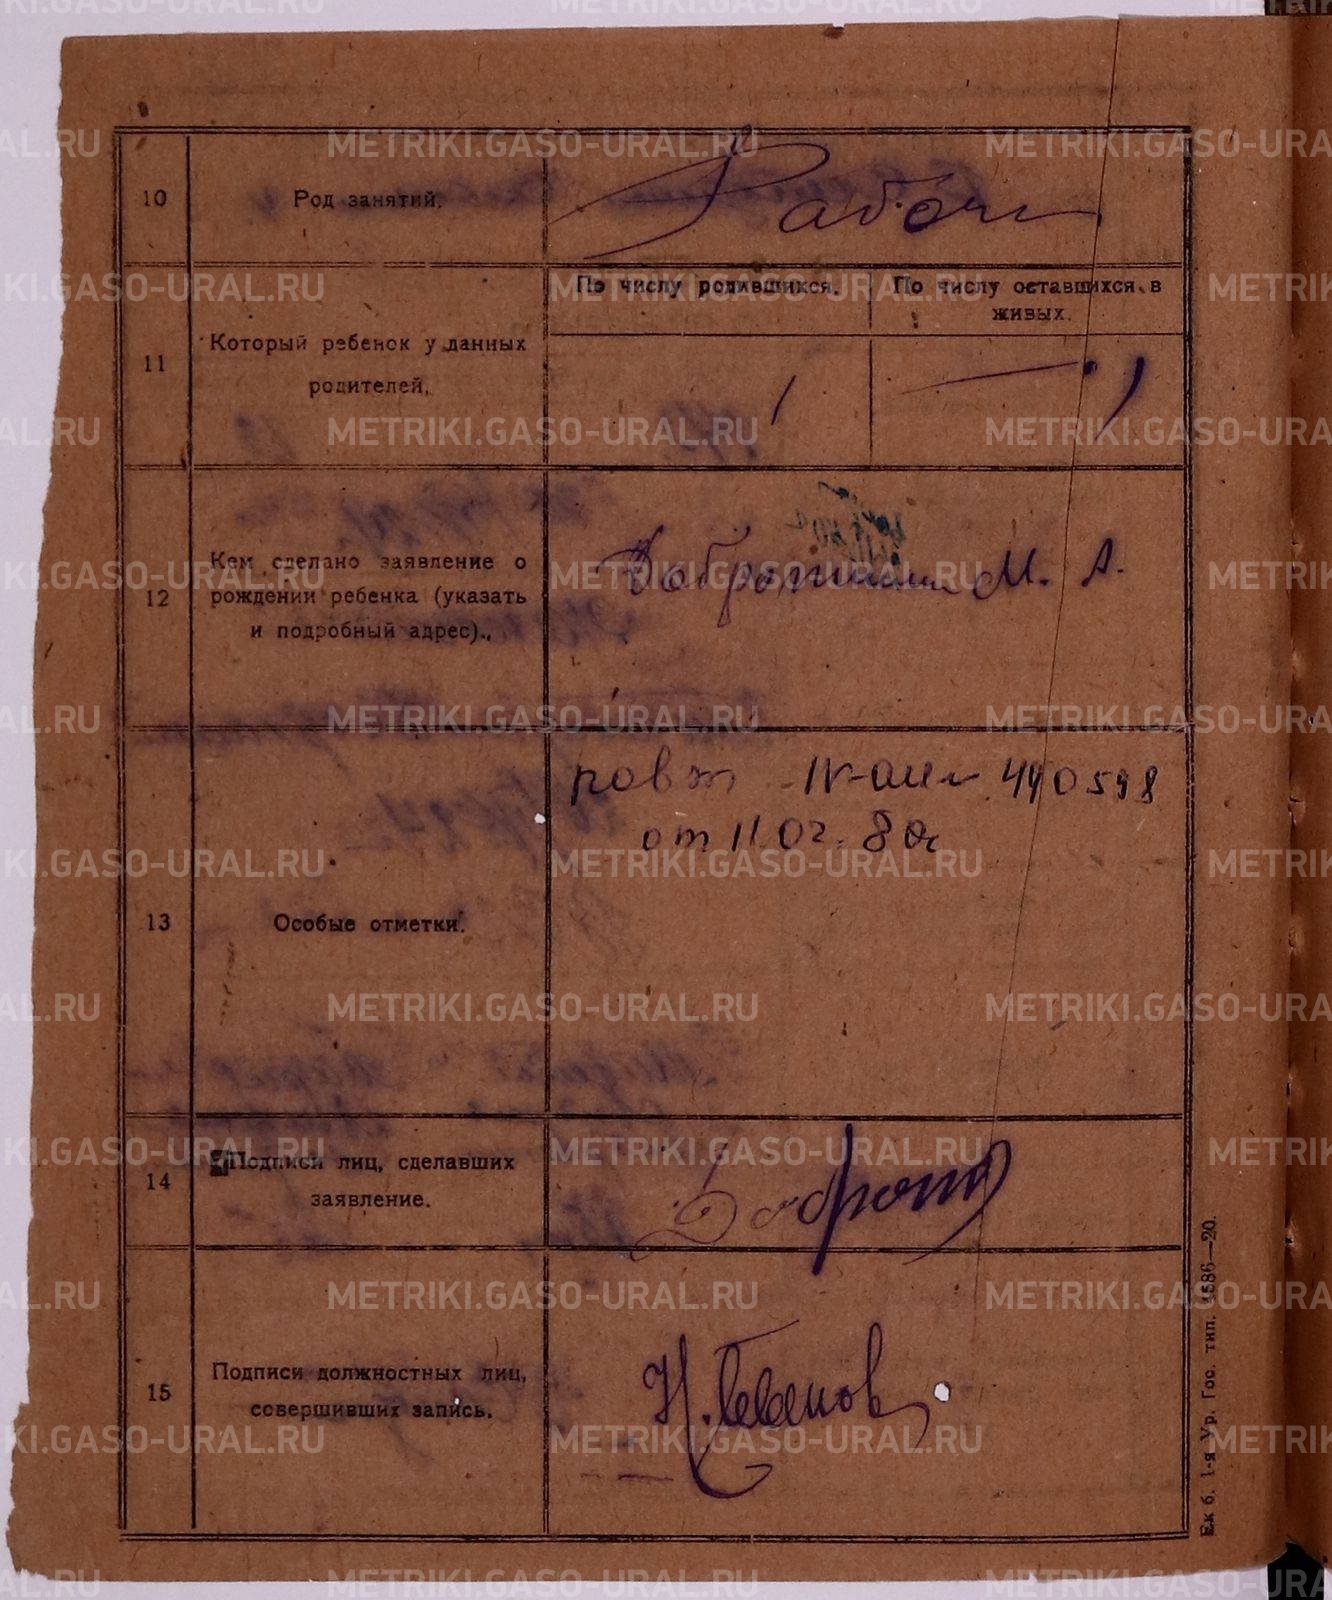 10
Род занятий.
Рабоч
11
Который ребенок у данных
родителей.
По числу родившихся.
1
По числу оставшихся в
живых.
1
12
Кем сделано заявление о
рождении ребенка (указать
и подробный адрес).
М. А.
13
Особые отметки.
440598
от 11.02.80г
14
Подписи лиц, сделавших
заявление.
15
Подписи должностных лиц,
совершивших запись.
Ек б. 1-я Ур. Гос. тип. 4586—20.
METRIKI.GASO-URAL.RU